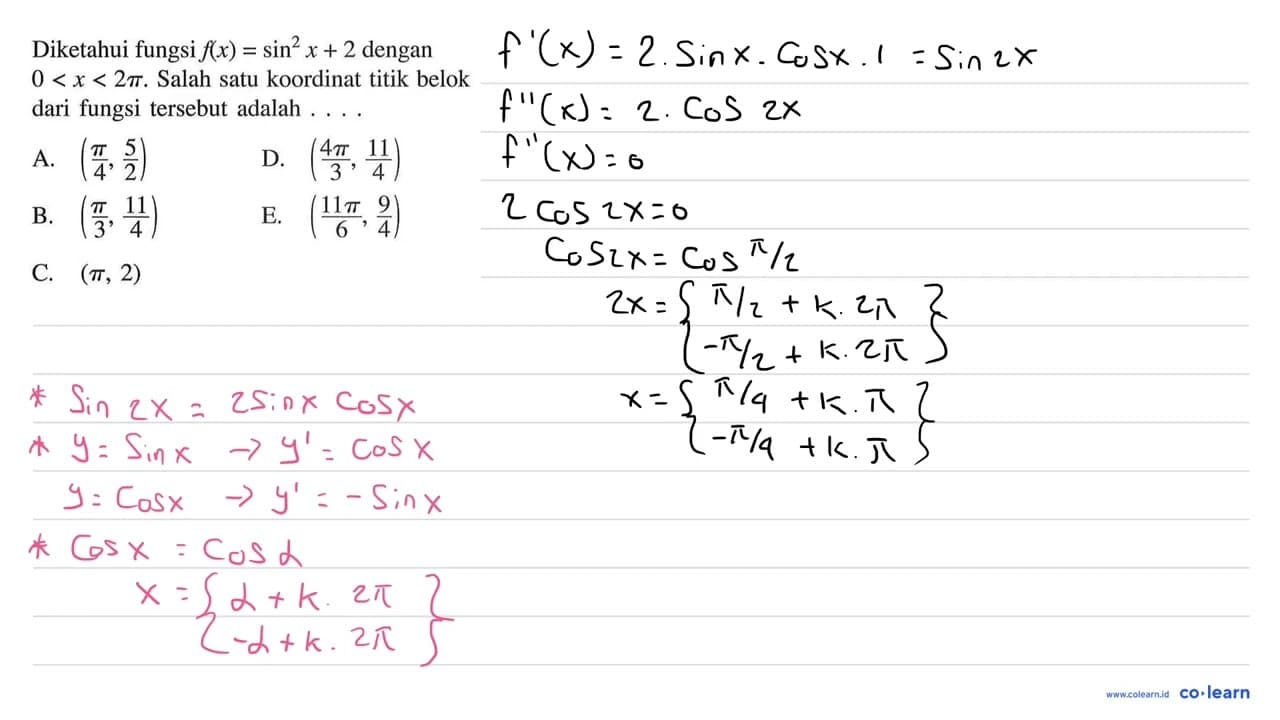 Diketahui fungsi f(x) = sin² x + 2 dengan
0 < x < 2π. Salah satu koordinat titik belok
dari fungsi tersebut adalah . . . .
A. (π/4, 5/2) D. (4π/3, 11/4)
B. (π/3, 11/4) E. (11π/6, 9/4)
C. (π, 2)
f'(x) = 2. Sin x. Cos x. 1 = Sin 2x
f''(x) = 2. Cos 2x
f''(x) = 0
2 Cos 2x = 0
Cos 2x = Cos π/2
2x = { π/2 + k. 2π }
{ -π/2 + k. 2π }
x = { π/4 + k. π }
{ -π/4 + k. π }
* Sin 2x = 2 Sin x Cos x
* y = Sin x → y' = Cos x
y = Cos x → y' = - Sin x
* Cos x = Cos α
x = { α + k. 2π }
{ -α + k. 2π }
www.colearn.id co·learn